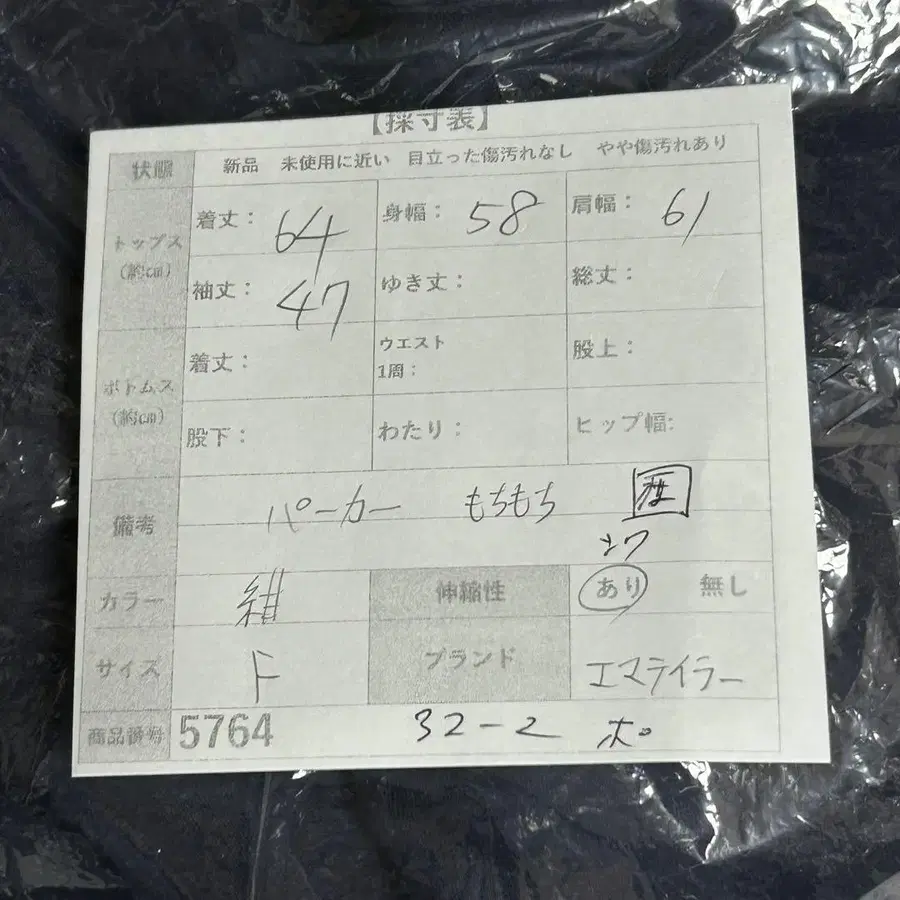 【採寸表】
状態 新品 未使用に近い 目立った傷汚れなし やや傷汚れあり
トップス (約cm)
着丈: 64 身幅: 58 肩幅: 61
袖丈: 47 ゆき丈: 総丈:
ボトムス (約cm)
着丈: ウエスト 1周: 股上:
股下: わたり: ヒップ幅:
備考 パーカー もちもち
カラー 紺 伸縮性 あり 無し
サイズ F ブランド エマテイラー
商品番号 5764 32-2 ポ